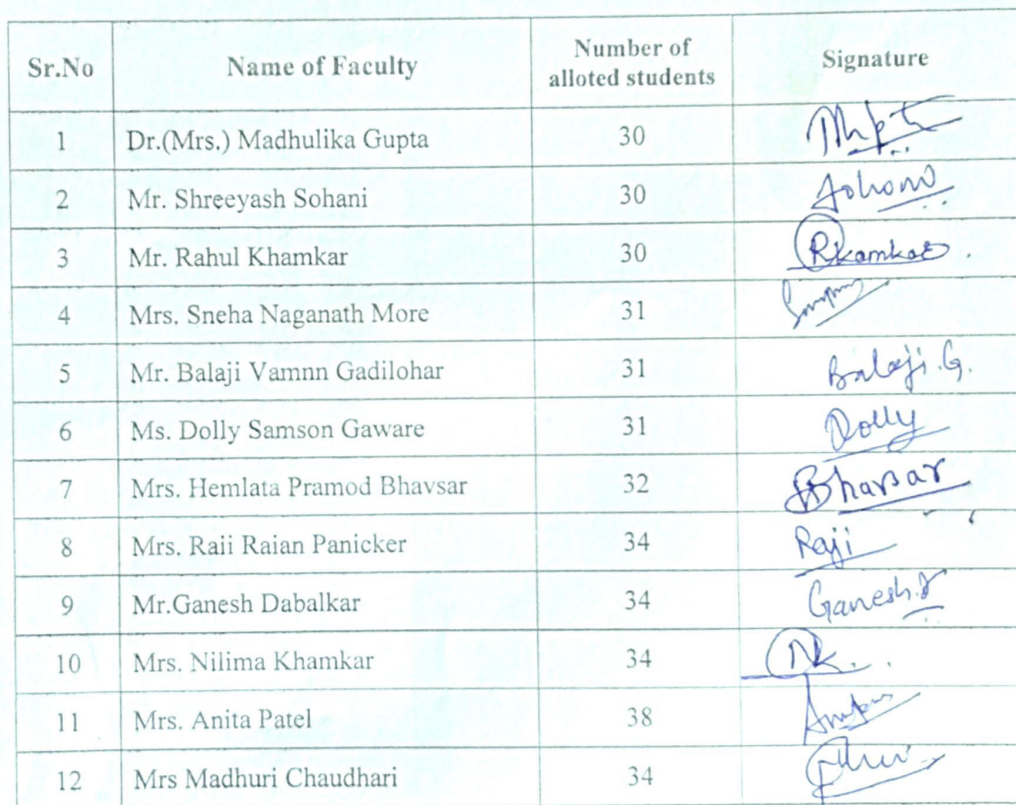 Sr.No Name of Faculty Number of alloted students Signature
1 Dr.(Mrs.) Madhulika Gupta 30
2 Mr. Shreeyash Sohani 30 Sohani
3 Mr. Rahul Khamkar 30 Rkamkar
4 Mrs. Sneha Naganath More 31
5 Mr. Balaji Vamnn Gadilohar 31 Balaji.G.
6 Ms. Dolly Samson Gaware 31 Dolly
7 Mrs. Hemlata Pramod Bhavsar 32 Bhavsar
8 Mrs. Raii Raian Panicker 34 Raji
9 Mr.Ganesh Dabalkar 34 Ganesh.D
10 Mrs. Nilima Khamkar 34 NK.
11 Mrs. Anita Patel 38
12 Mrs Madhuri Chaudhari 34